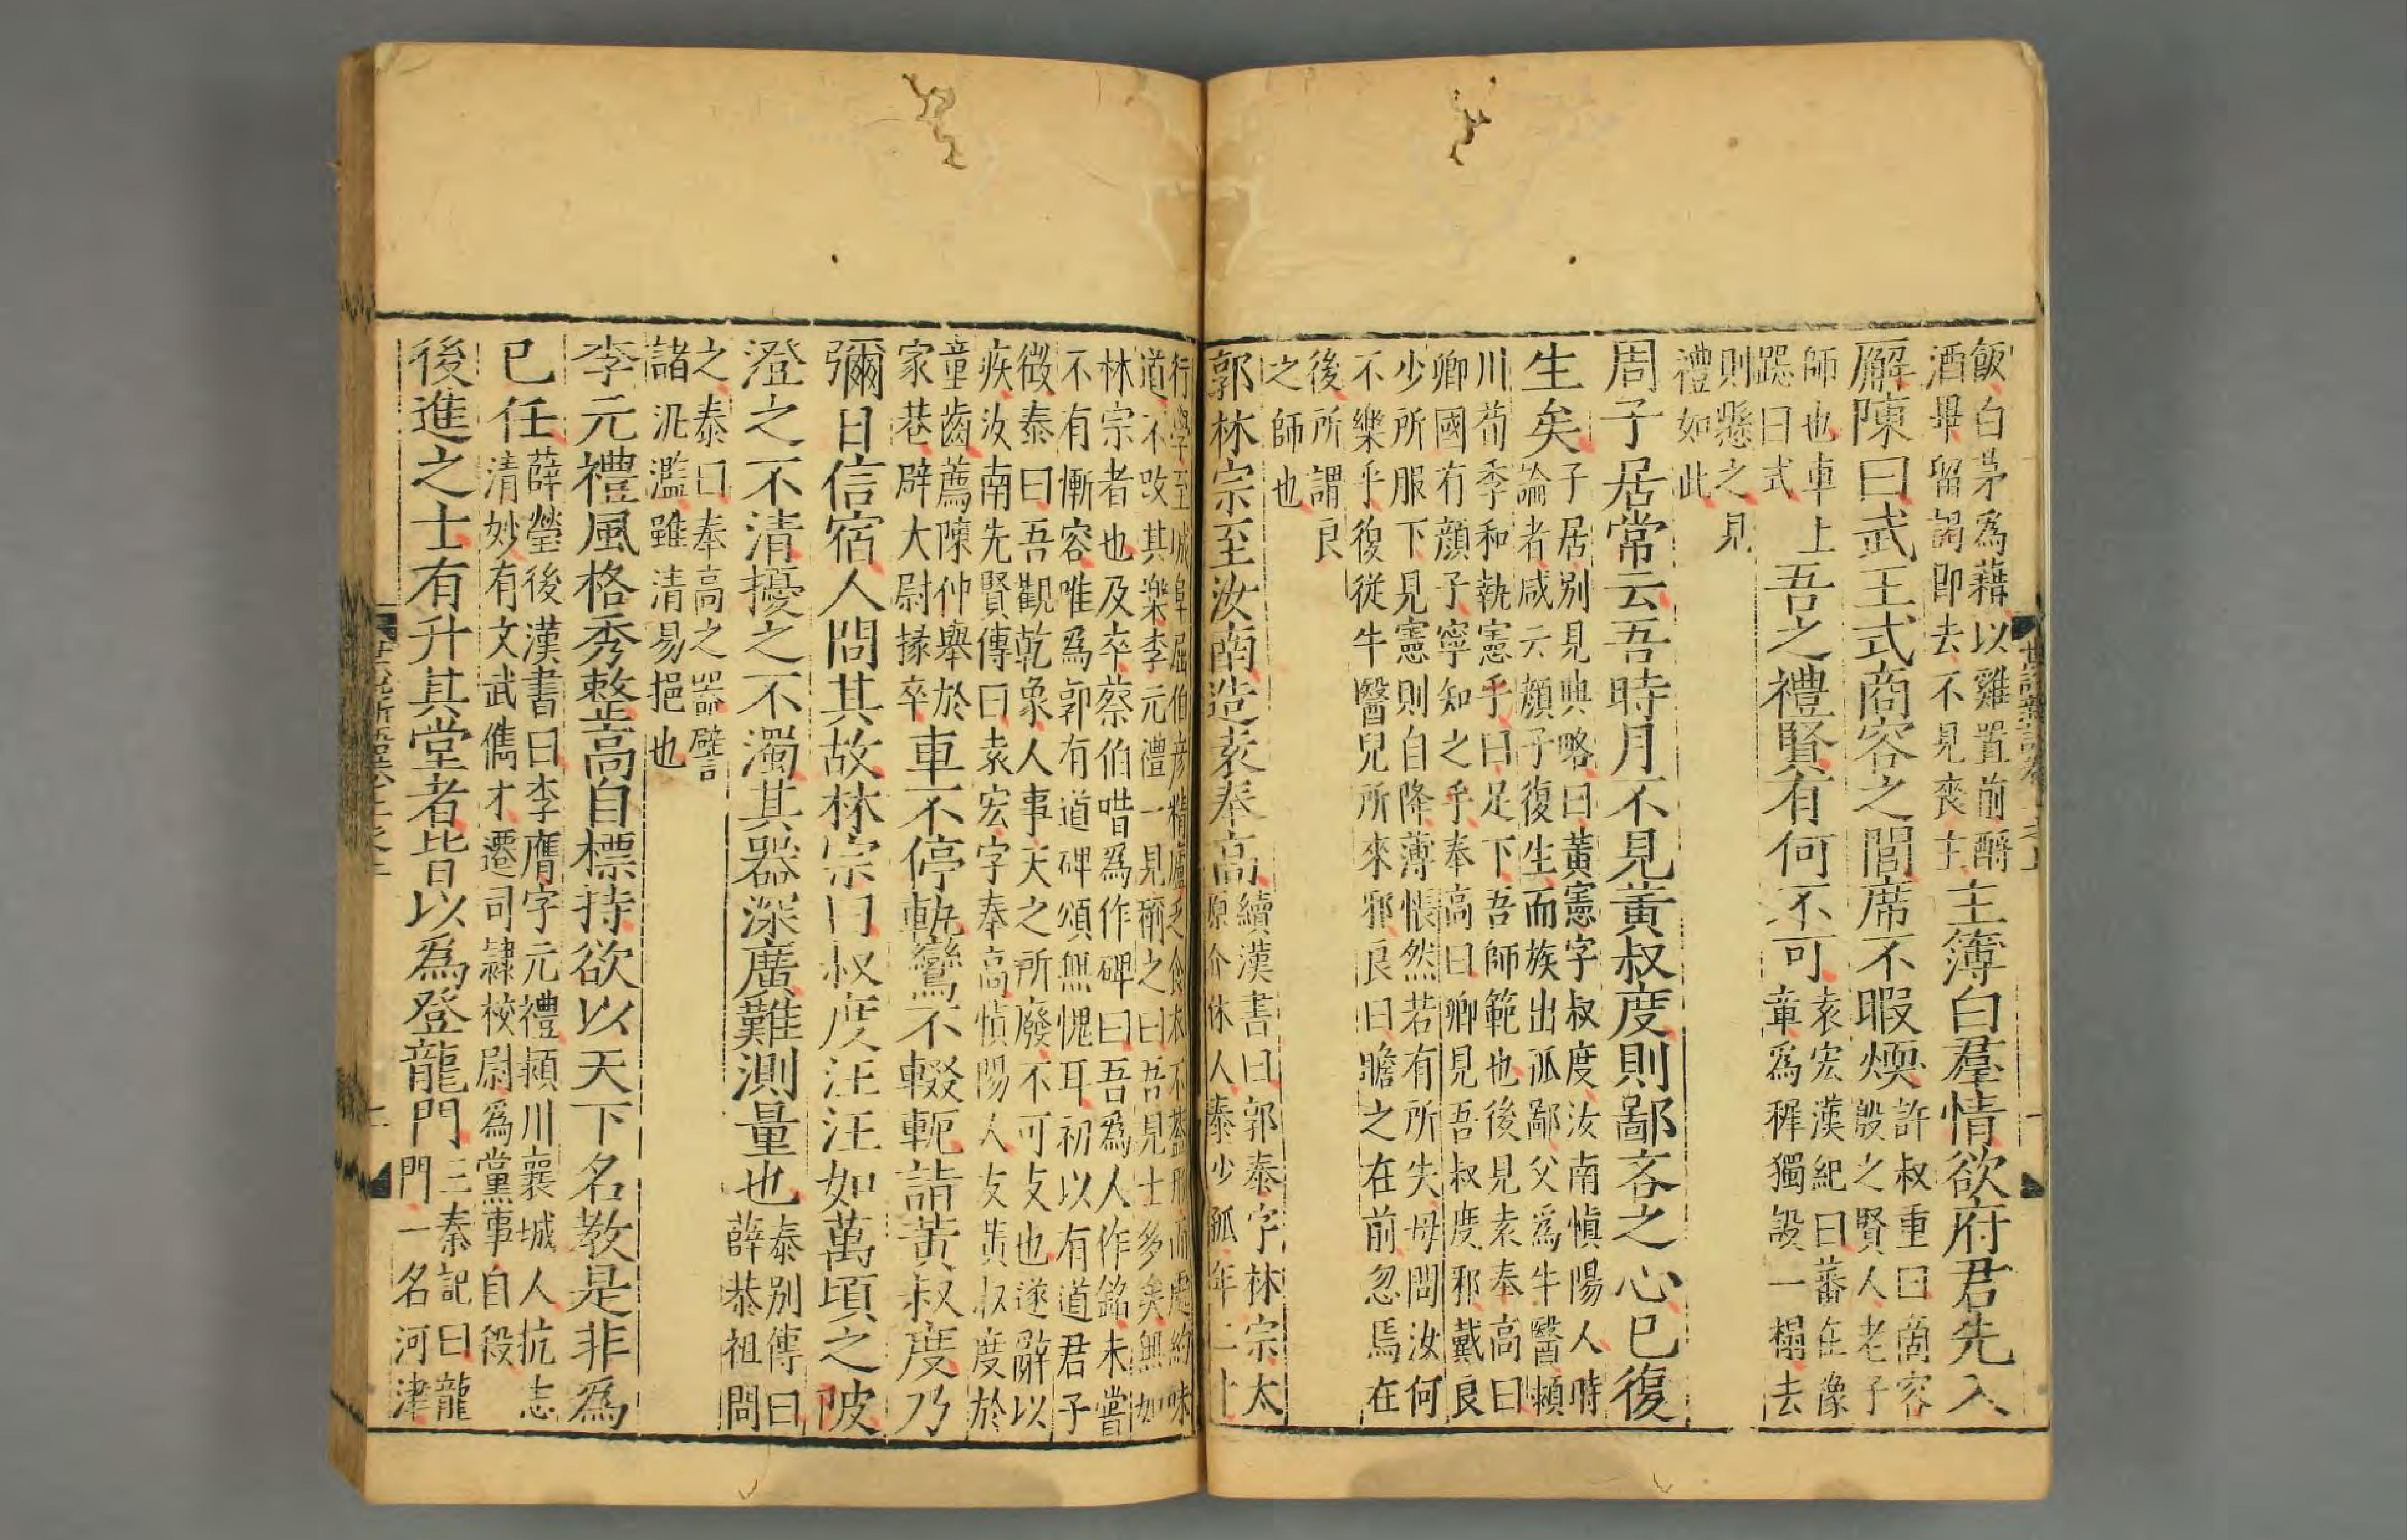 飯白茅爲藉以雞置前酹
酒畢留謁即去不見喪主
主簿白羣情欲府君先入
廨陳曰武王式商容之閭席不暇煗
許叔重曰商容
殷之賢人老子
師也車上
跽曰式
吾之禮賢有何不可
袁宏漢紀曰蕃在豫
章爲穉獨設一榻去
則懸之見
禮如此
周子居常云吾時月不見黃叔度則鄙吝之心已復
生矣
子居別見典略曰黃憲字叔度汝南慎陽人時
論者咸云顔子復生而族出孤鄙父爲牛醫潁
川荀季和執憲手曰足下吾師範也後見袁奉高曰
卿國有顔子寧知之乎奉高曰卿見吾叔度邪戴良
少所服下見憲則自降薄悵然若有所失母問汝何
不樂乎復從牛醫兒所來邪良曰瞻之在前忽焉在
後所謂良
之師也
郭林宗至汝南造袁奉高
續漢書曰郭泰字林宗太
原介休人泰少孤年二十
行學至城阜屈伯彦精廬乏食衣不蓋形而處約味
道不改其樂李元禮一見稱之曰吾見士多矣無如
林宗者也及卒蔡伯喈爲作碑曰吾爲人作銘未嘗
不有慚容唯爲郭有道碑頌無愧耳初以有道君子
徵泰曰吾觀乾象人事天之所廢不可支也遂辭以
疾汝南先賢傳曰袁宏字奉高慎陽人友黃叔度於
童齒薦陳仲舉於
家巷辟大尉掾卒
車不停軌鸞不輟軛詣黃叔度乃
彌日信宿人問其故林宗曰叔度汪汪如萬頃之陂
澄之不清擾之不濁其器深廣難測量也
泰別傳曰
薛恭祖問
之泰曰奉高之器譬
諸汎濫雖清易挹也
李元禮風格秀整高自標持欲以天下名教是非爲
已任
薛瑩後漢書曰李膺字元禮潁川襄城人抗志
清妙有文武儁才遷司隸校尉爲黨事自殺
後進之士有升其堂者皆以爲登龍門
三秦記曰龍
門一名河津